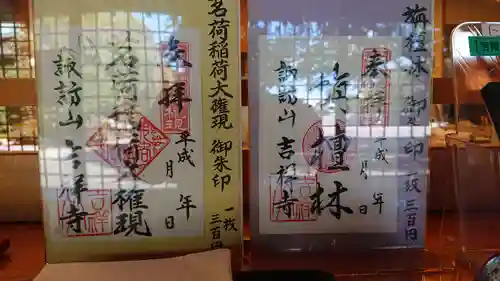 茗荷稲荷大権現 御朱印 一枚 三百円
奉拝
平成 年 月 日
茗荷稲荷大権現
諏訪山 吉祥寺
旃檀林 御朱印 一枚 三百円
奉拝
平成 年 月 日
旃檀林
諏訪山 吉祥寺